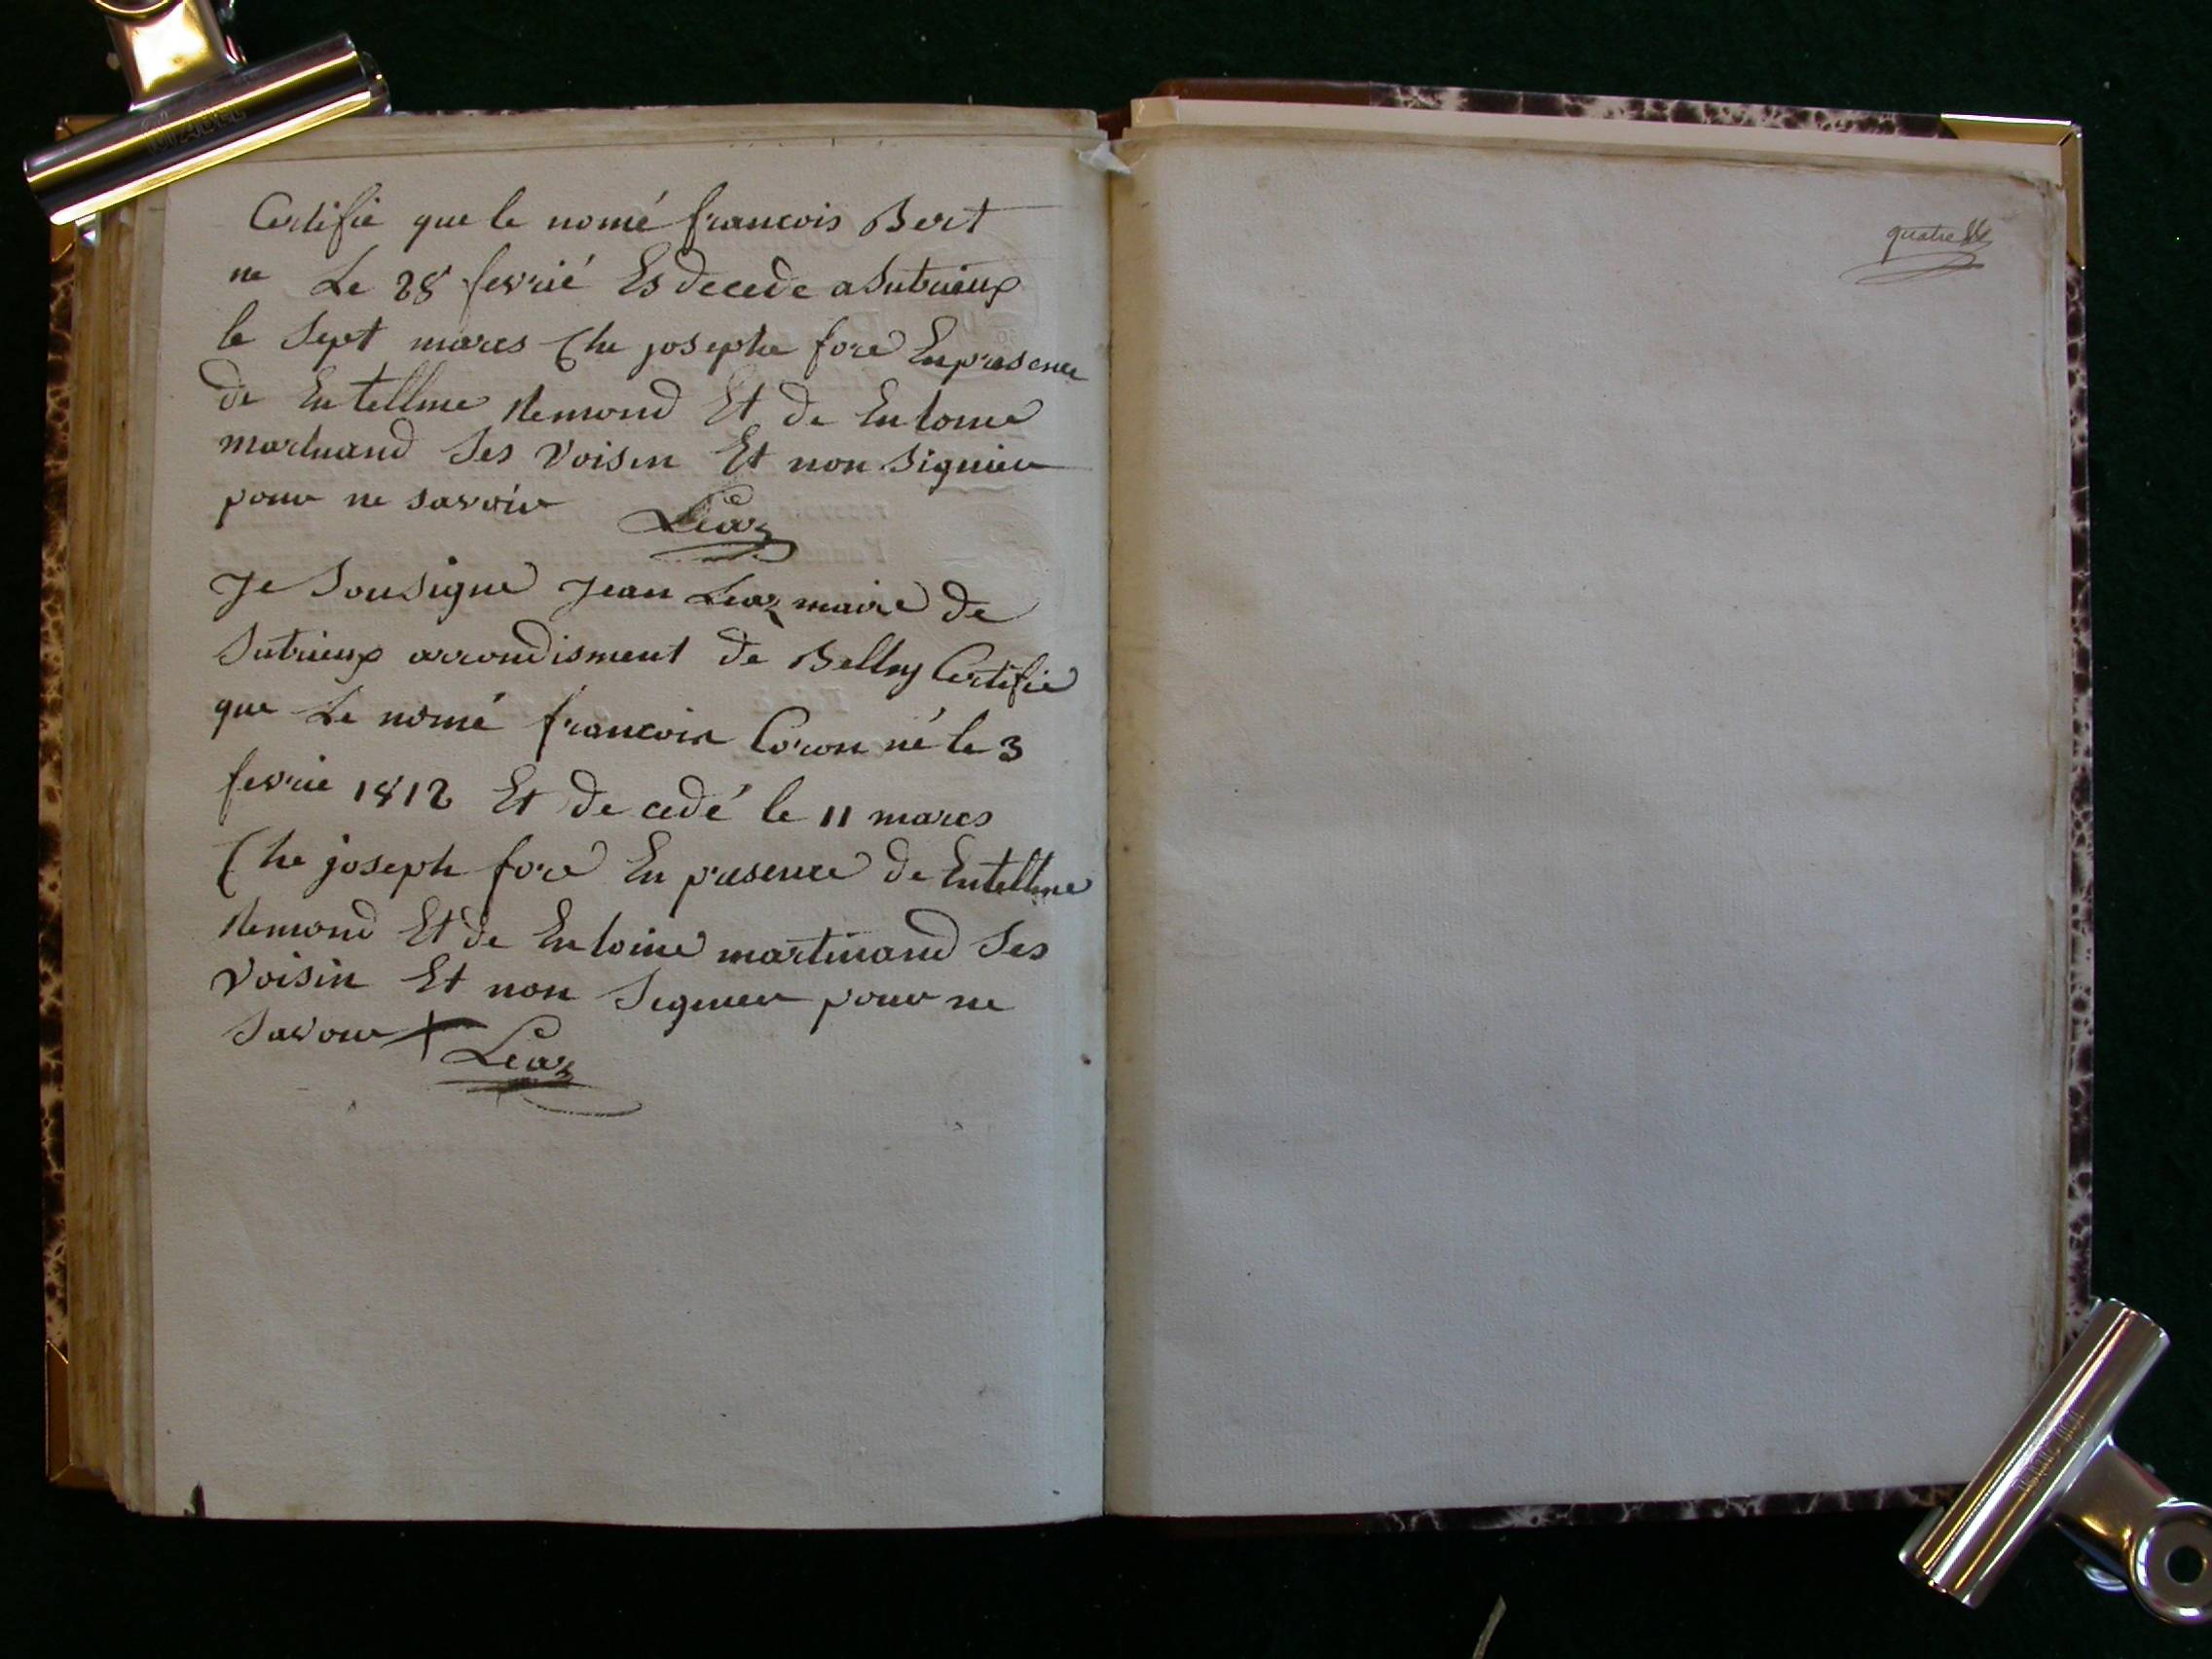 Certifie que le nomé francois Bert
ne Le 28 fevrié Es decede a Sutrieux
le Sept mares Che josephe fore En presence
de Entellme Remond Et de Entome
martinand Ses Voisin Et non Signier
pour ne savoir Leaz
Je Sousigne Jean Leaz maire de
Sutrieux arrondisment de Belley Certifie
que Le nomé francois Coron né le 3
fevrie 1812 Et de cedé le 11 mares
Che joseph fore En presence de Entellme
Remond Et de Entoine martinand Ses
Voisin Et non Signier pour ne
Savoir Leaz
quatre